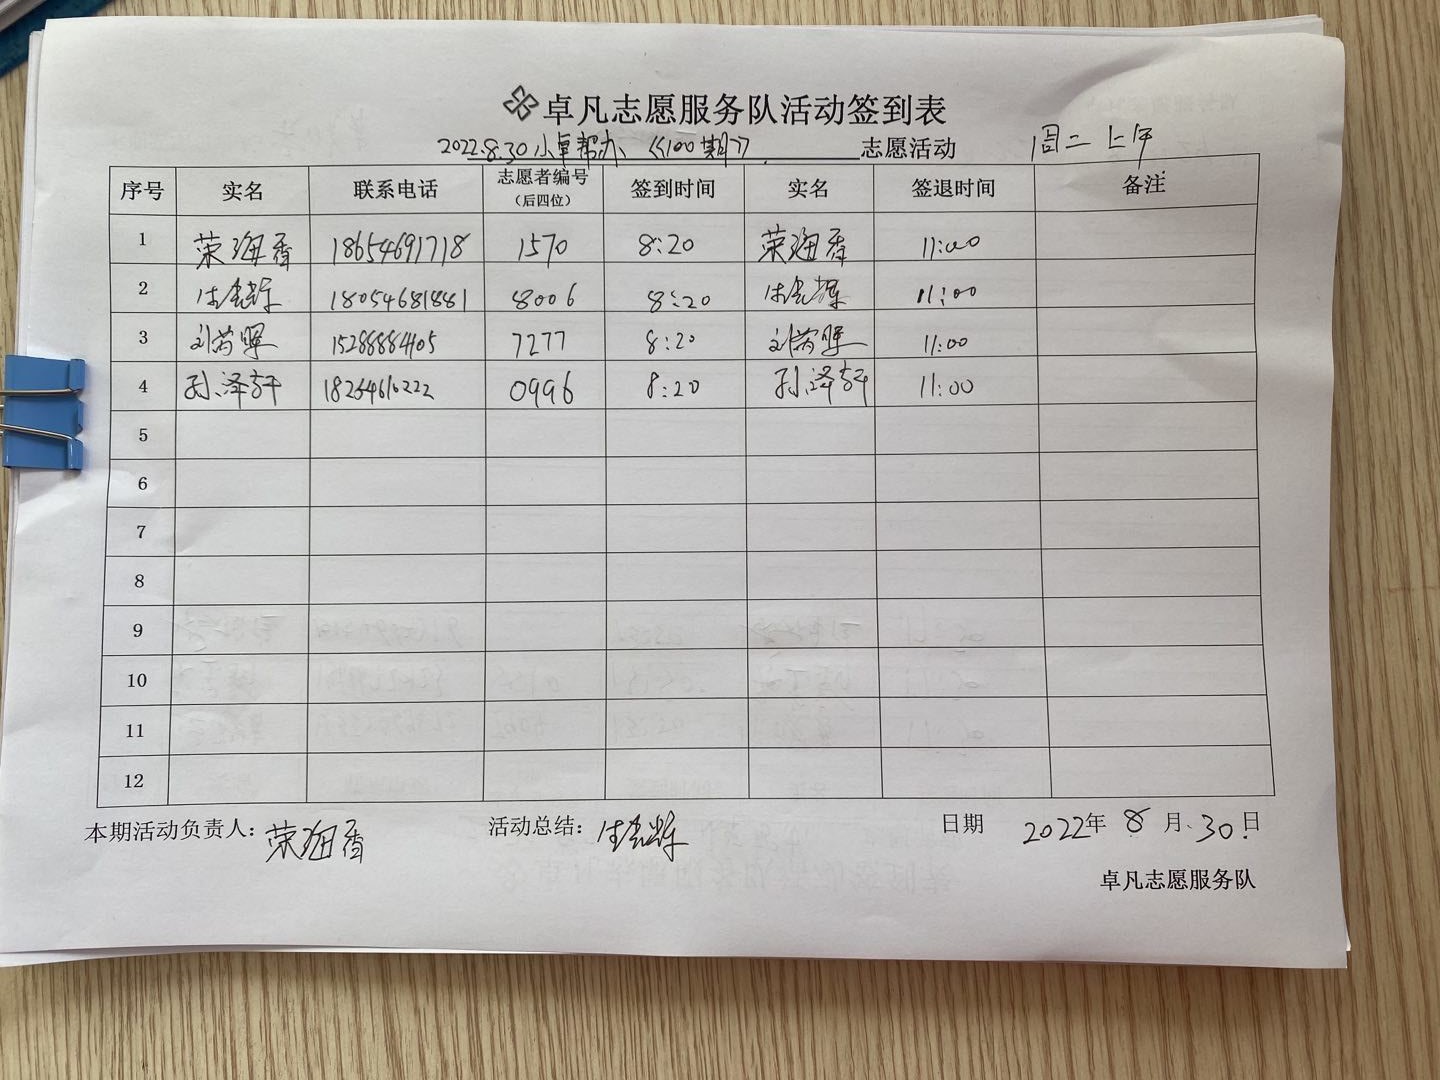 卓凡志愿服务队活动签到表
2022.8.30小卓帮办《100期》 志愿活动 周二上午
序号 实名 联系电话 志愿者编号（后四位） 签到时间 实名 签退时间 备注
1 荣海香 18654691718 1570 8:20 荣海香 11:00
2 18054681881 8006 8:20 11:00
3 15288884105 7277 8:20 11:00
4 孙泽轩 18264610222 0996 8:20 孙泽轩 11:00
5
6
7
8
9
10
11
12
本期活动负责人：荣海香 活动总结： 日期 2022年 8 月 30日
卓凡志愿服务队